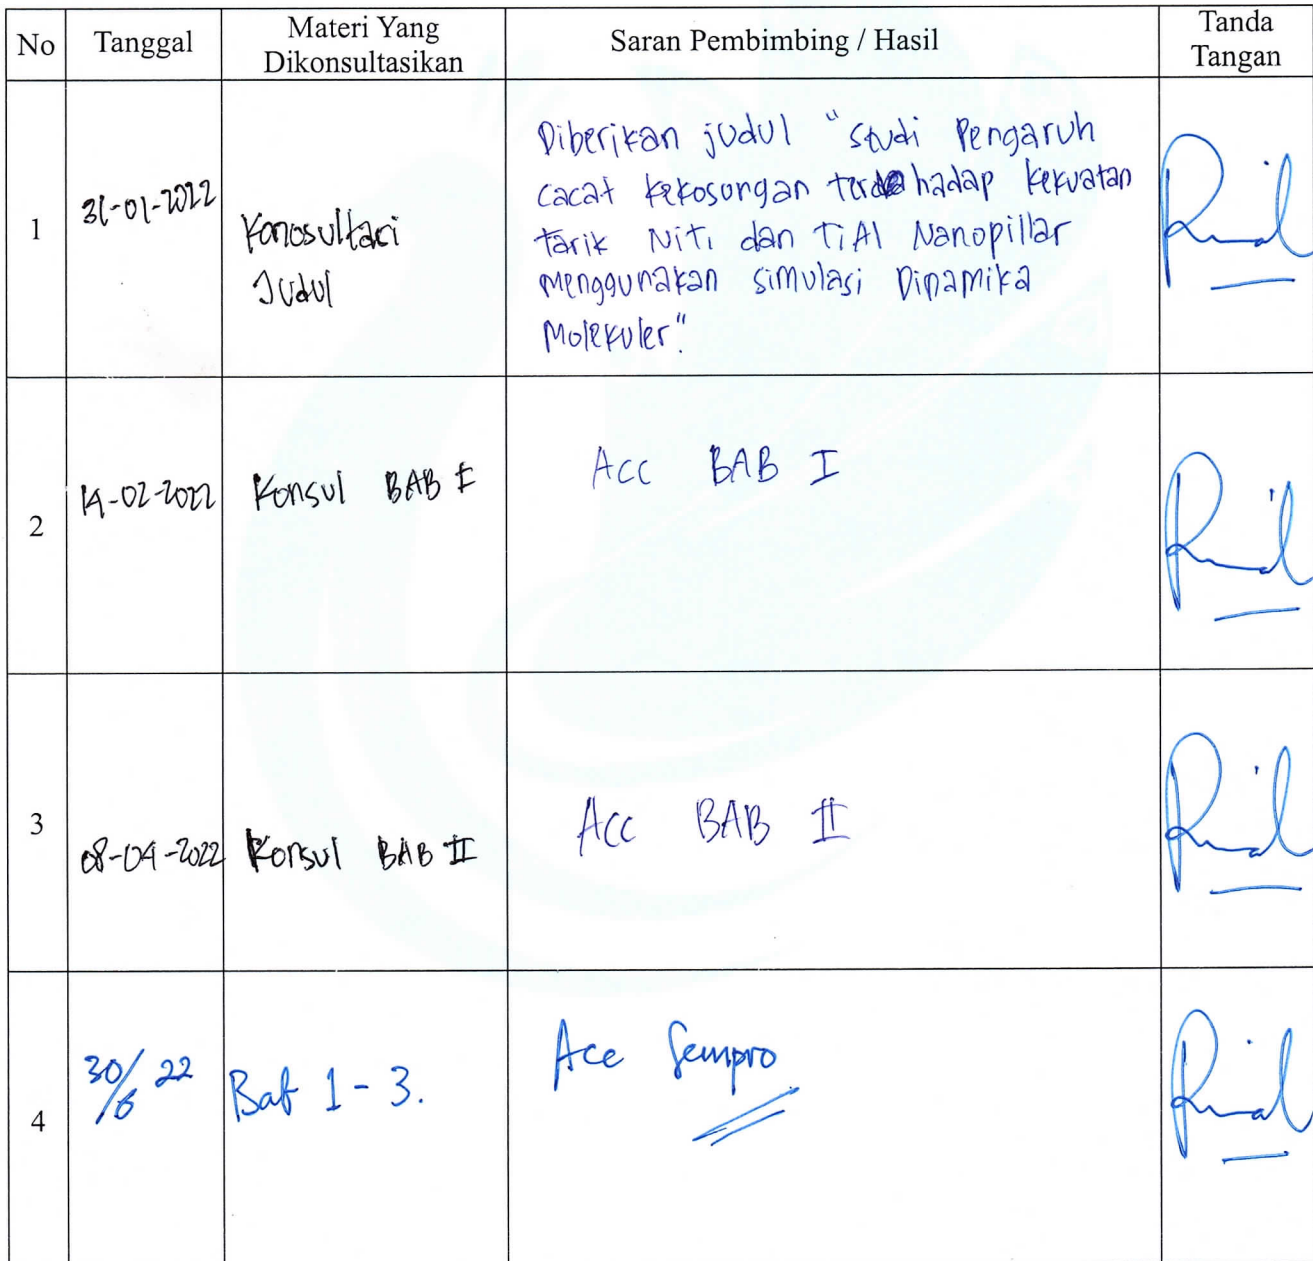 No
Tanggal
Materi Yang
Dikonsultasikan
Saran Pembimbing / Hasil
Tanda
Tangan
1
31-01-2022
Konosultasi
Judul
Diberikan judul "Studi Pengaruh
cacat kekosongan terhadap kekuatan
tarik NiTi dan TiAl Nanopillar
menggunakan simulasi Dinamika
Molekuler"
2
14-02-2022
Konsul BAB I
Acc BAB I
3
08-04-2022
Konsul BAB II
Acc BAB II
4
30/6 22
Bab 1-3.
Acc Sempro